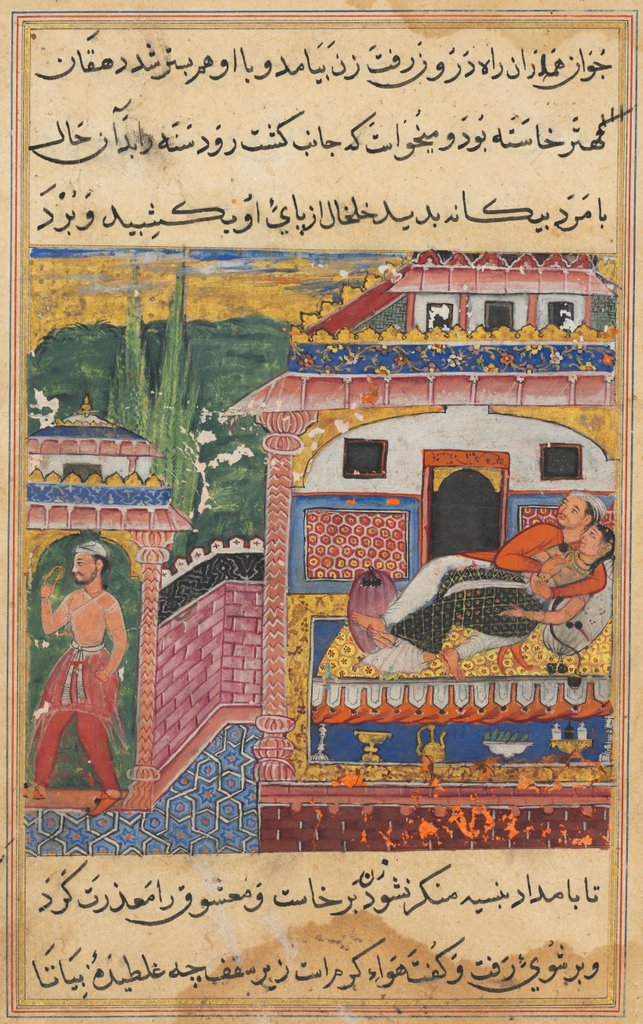 جوان هم ازان راه درون رفت زن بیامد و با او هم بستر شد دهقان
مهتر خاسته بود و میخواست که جانب کشت رود سنه را بدان حال
با مرد بیکانه بدید خلخال از پائ او بکشید و ببرد
تا بامداد بنسیه منکر نشود زن برخاست و معشوق را معذرت کرد
و بر شوئ رفت و کفت هواء کرم است زیر سقف چه غلطیدهٔ بیا تا